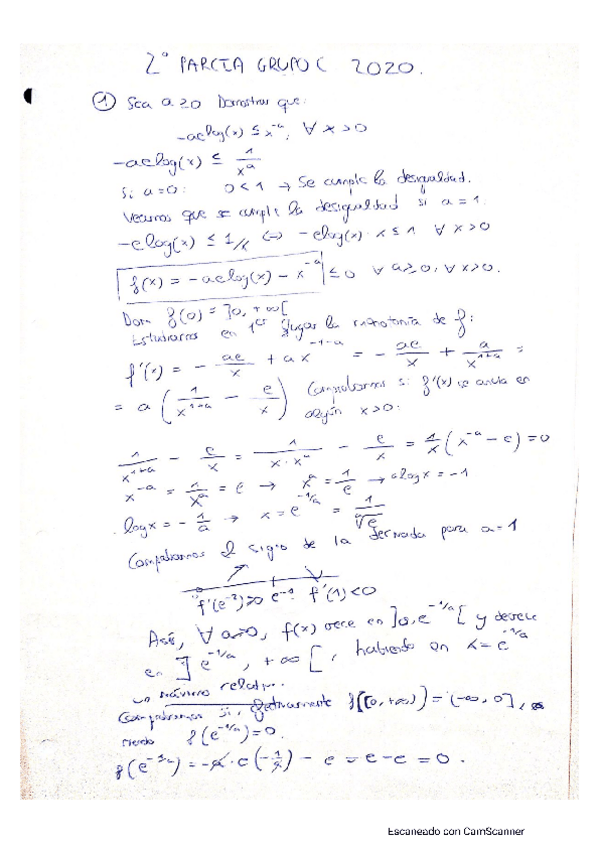 2º PARCIA GRUPO C 2020.
① Sea a≥0 Demostrar que:
-ae log(x) ≤ x^{-a}, ∀ x>0
-ae log(x) ≤ 1/x^a
Si a=0: 0<1 → Se cumple la desigualdad.
Veamos que se cumple la desigualdad si a=1.
-e log(x) ≤ 1/x ⇔ -e log(x)·x ≤ 1 ∀ x>0
f(x) = -ae log(x) - x^{-a} ≤ 0 ∀ a≥0, ∀ x>0.
Dom f(0) = ]0,+∞[
Estudiamos en 1er lugar la monotonía de f:
f'(x) = - ae/x + ax^{-1-a} = - ae/x + a/x^{1+a} =
= a(1/x^{1+a} - e/x) Comprobamos si f'(x) se anula en
algún x>0:
1/x^{1+a} - e/x = 1/(x·x^a) - e/x = 1/x (x^{-a} - e) = 0
x^{-a} = 1/x^a = e → x^a = 1/e → a log x = -1
log x = - 1/a → x = e^{-1/a} = 1/ᵃ√e
Comprobamos el signo de la derivada para a=1
f'(e^{-2})>0 e^{-1} f'(1)<0
Así, ∀ a>0, f(x) crece en ]0, e^{-1/a}[ y decrece
en ]e^{-1/a}, +∞[, habiendo en x=e^{-1/a}
un máximo relativo.
Comprobamos si, efectivamente f([0,+∞)) = (-∞, 0],
siendo f(e^{-1/a})=0.
f(e^{-1/a}) = -a·e(-1/a) - e = e-e = 0.
Escaneado con CamScanner